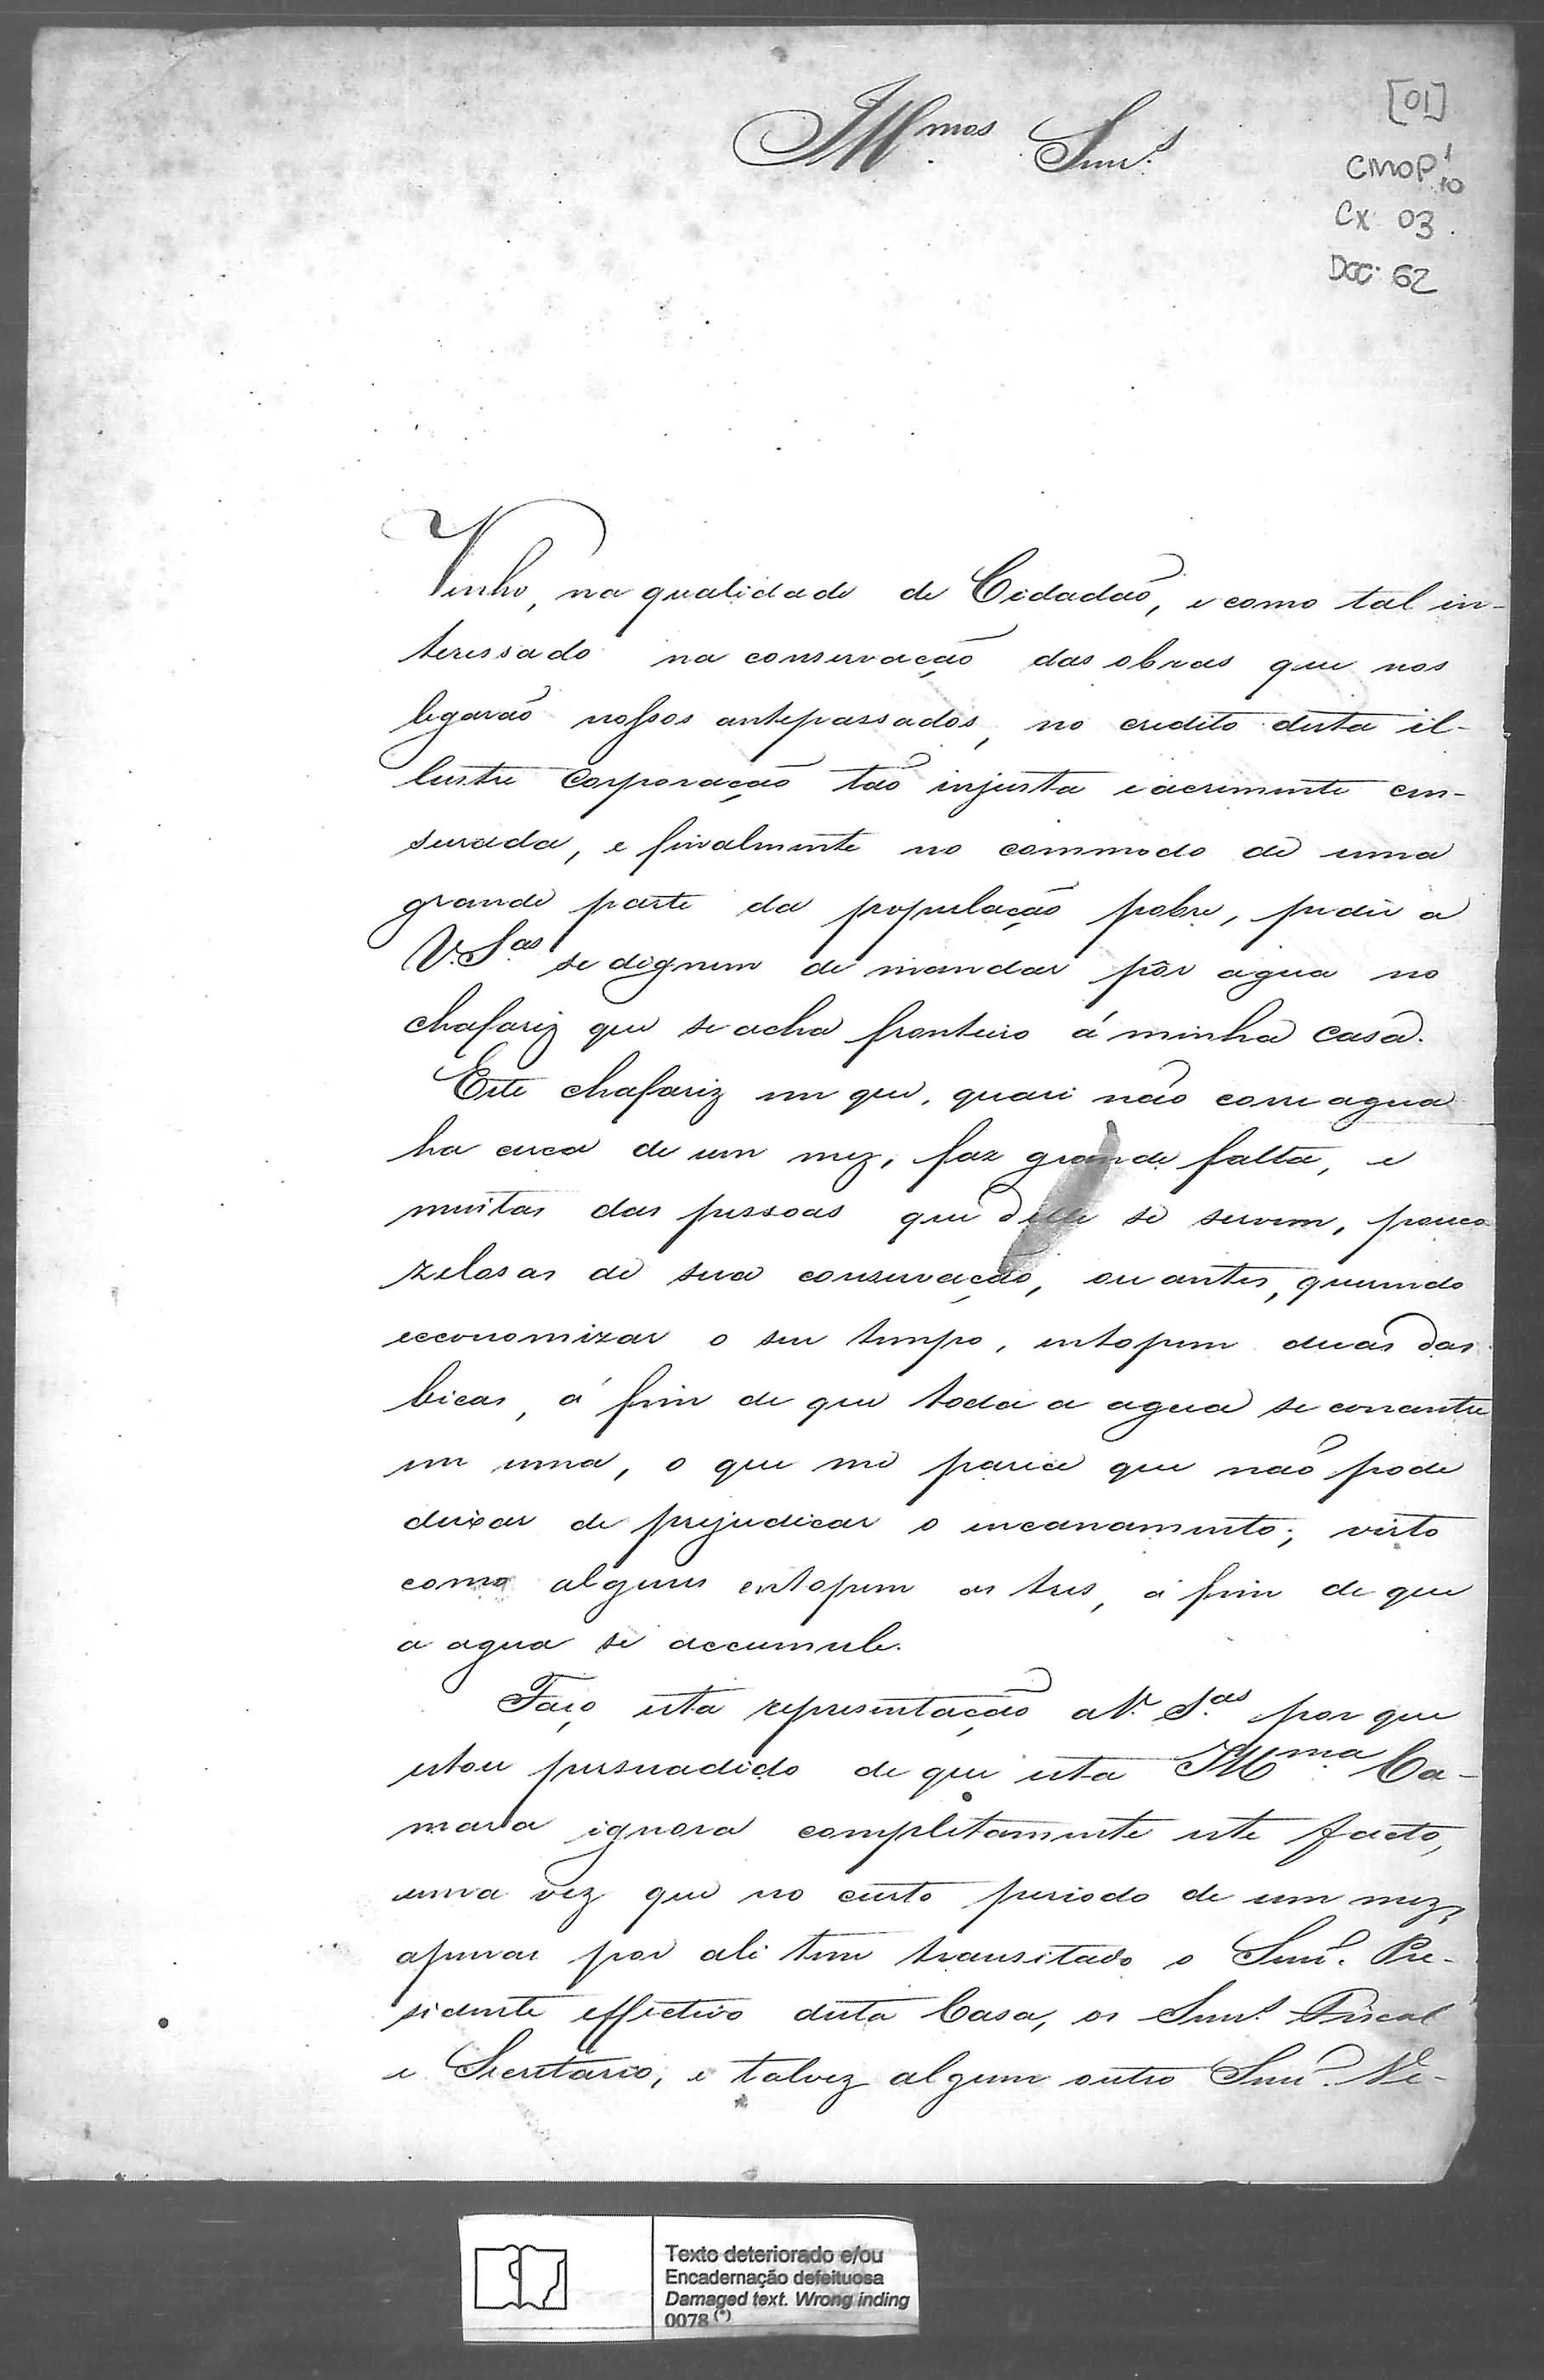 [01]
CMOP 1/10
Cx 03.
Doc. 62
Illmos. Snrs.
Venho, na qualidade de Cidadão, e como tal in-
teressado na conservação das obras que nos
legarão nossos antepassados, no credito desta il-
lustre Corporação tão injusta e acremente cen-
surada, e finalmente no commodo de uma
grande parte da população pobre, pedir a
V. S.as se dignem de mandar pôr agua no
chafariz que se acha fronteiro á minha casa.
Este chafariz em que, quasi não corre agua
ha cerca de um mez, faz grande falta, e
muitas das pessoas que delle se servem, pouco
zelosas de sua conservação, ou antes, querendo
economizar o seu tempo, entopem duas das
bicas, á fim de que toda a agua se concentre
em uma, o que me parece que não pode
deixar de prejudicar o encanamento; visto
como alguns entopem as tres, á fim de que
a agua se accumule.
Faço esta representação a V. S.as por que
estou persuadido de que esta Illma. Ca-
mara ignora completamente este facto,
uma vez que no curto periodo de um mez,
apenas por ali tem transitado o Snr. Pre-
sidente effectivo desta Casa, os Snrs. Fiscal
e Secretario, e talvez algum outro Snr. Ve-
Texto deteriorado e/ou
Encadernação defeituosa
Damaged text. Wrong inding
0078 (*)